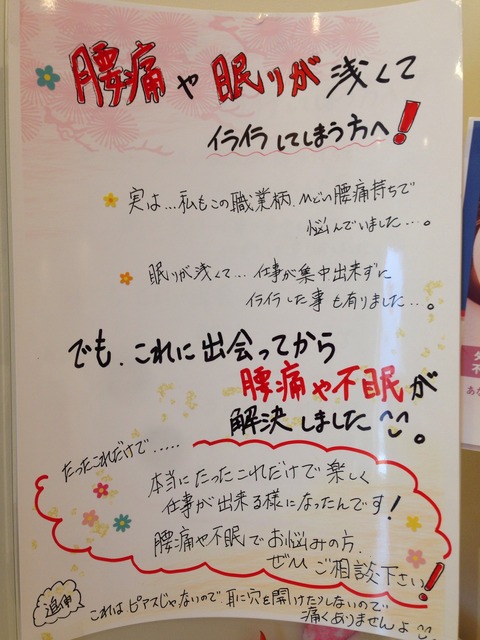 腰痛や眠りが浅くて
イライラしてしまう方へ!
実は…私もこの職業柄、ひどい腰痛持ちで
悩んでいました…。
眠りが浅くて…仕事が集中出来ずに
イライラした事も有りました…。
でも、これに出会ってから
腰痛や不眠が
解決しました^^。
たったこれだけで.....
本当にたったこれだけで楽しく
仕事が出来る様になったんです!
腰痛や不眠でお悩みの方、
ぜひご相談下さい!
追伸
これはピアスじゃないので、耳に穴を開けたりしないので
痛くありませんよ^^